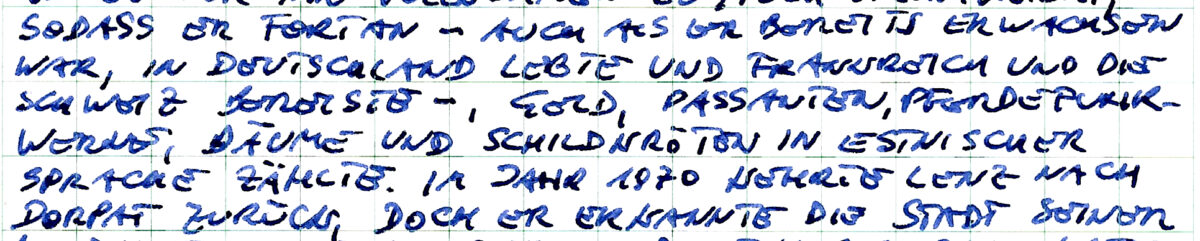 SODASS ER FORTAN – AUCH ALS ER BEREITS ERWACHSEN
WAR, IN DEUTSCHLAND LEBTE UND FRANKREICH UND DIE
SCHWEIZ BEREISTE –, GELD, PASSANTEN, PFERDEFUHR-
WERKE, BÄUME UND SCHILDKRÖTEN IN ESTNISCHER
SPRACHE ZÄHLTE. IM JAHR 1970 KEHRTE LENZ NACH
DORPAT ZURÜCK, DOCH ER ERKANNTE DIE STADT SEINER